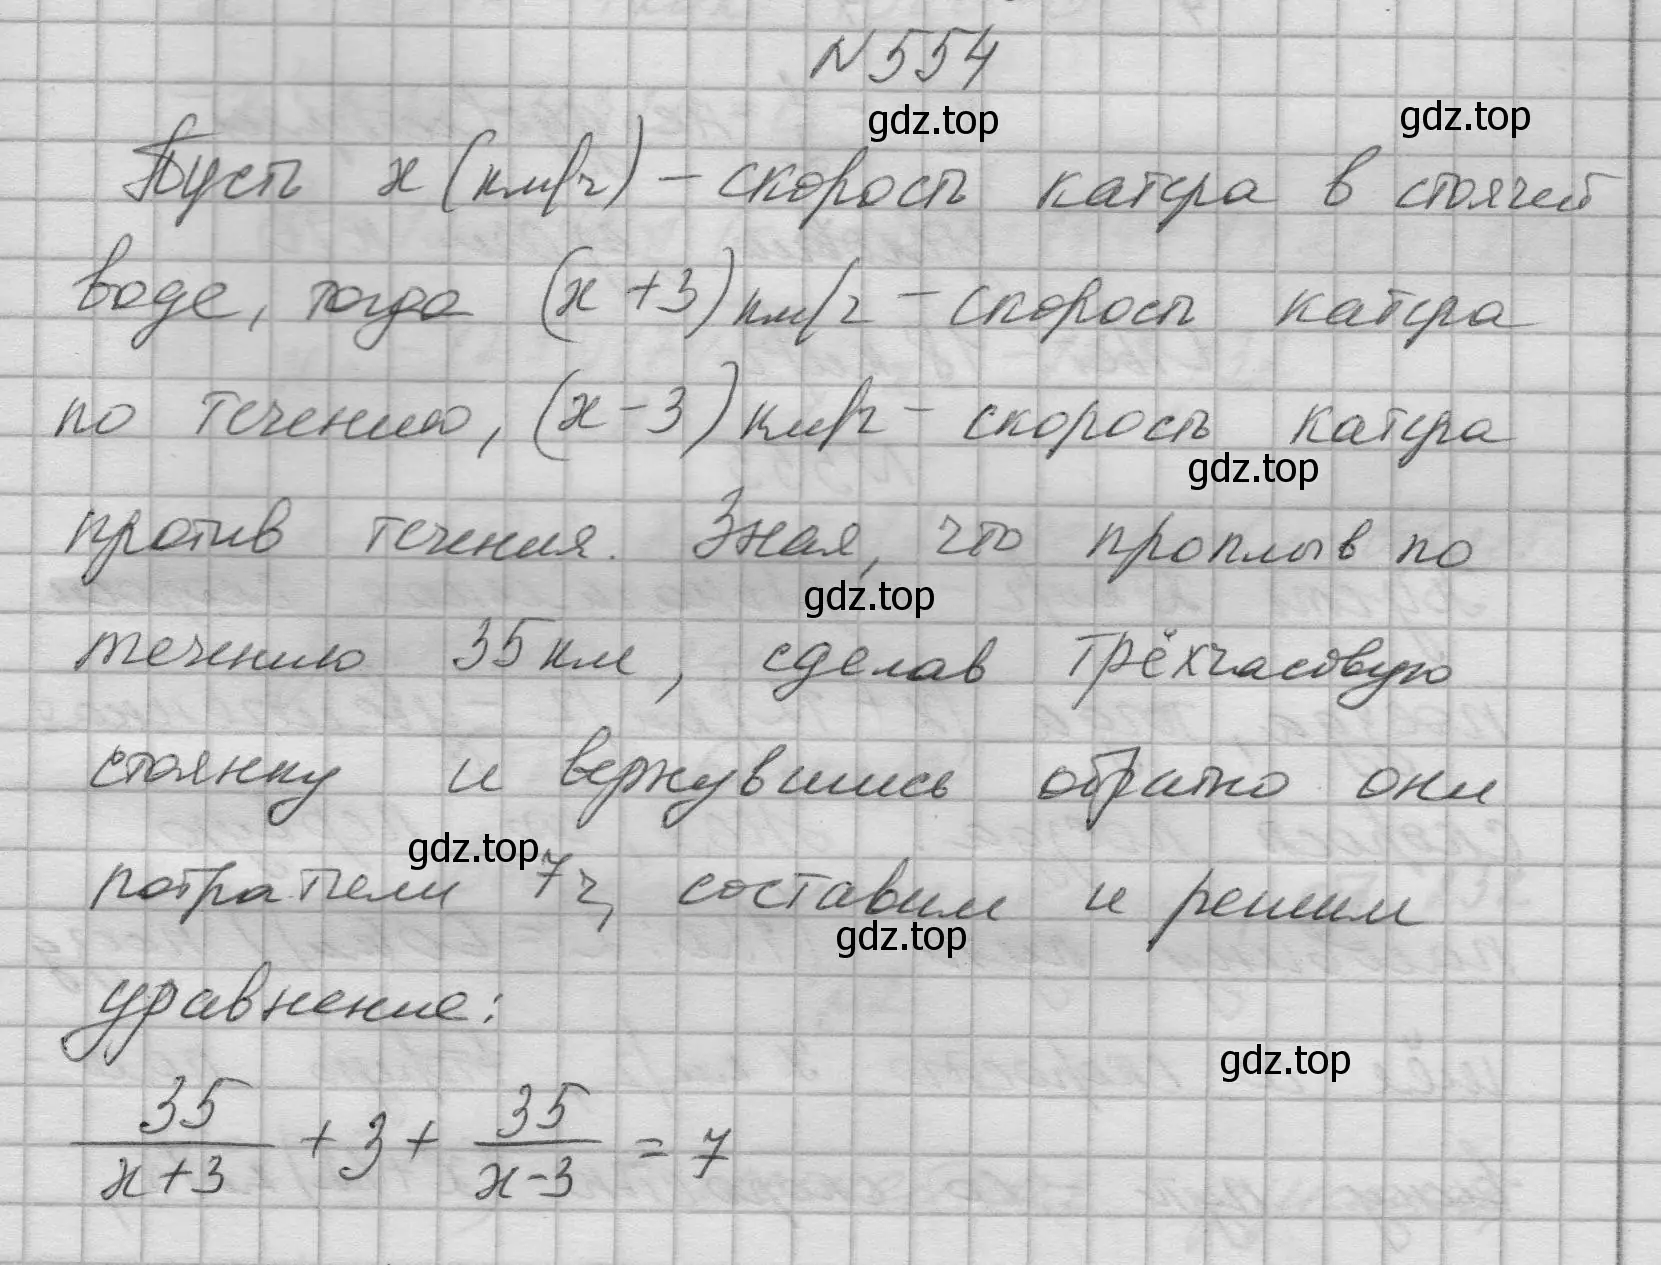 N 554
gdz.top
gdz.top
Пусть x (км/ч) – скорость катера в стоячей
воде, тогда (x + 3) км/ч – скорость катера
по течению, (x - 3) км/ч – скорость катера
gdz.top
против течения. Зная, что проплыв по
gdz.top
течению 35 км, сделав трёхчасовую
стоянку и вернувшись обратно они
gdz.top
потратили 7ч, составим и решим
gdz.top
уравнение:
gdz.top
35/(x+3) + 3 + 35/(x-3) = 7